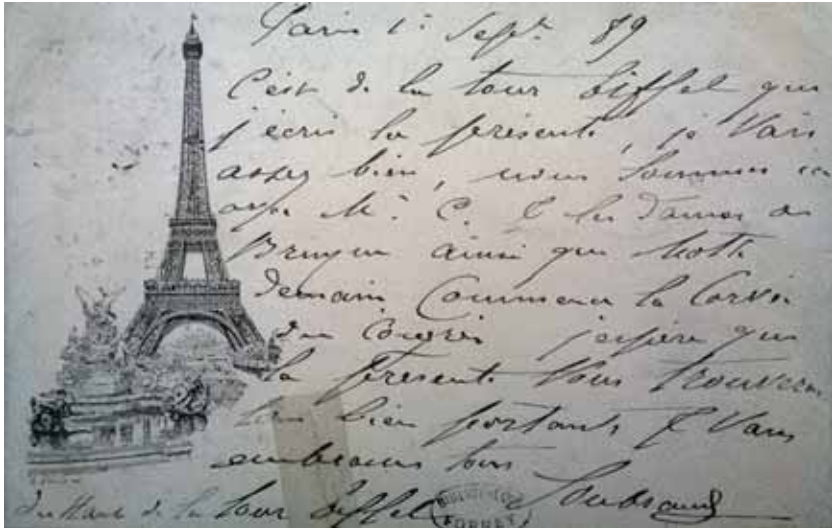 Paris 1er Sept. 89
C'est de la tour Eiffel que
j'écris la présente, je vais
assez bien, nous sommes ici
avec M. C. & les Dames de
ainsi que
demain commence la corvée
du Congrès j'espère que
la présente vous trouvera
tous bien portants & vous
embrasse tous
du Haut de la tour Eiffel
BIBLIOTHÈQUE
FORNEY